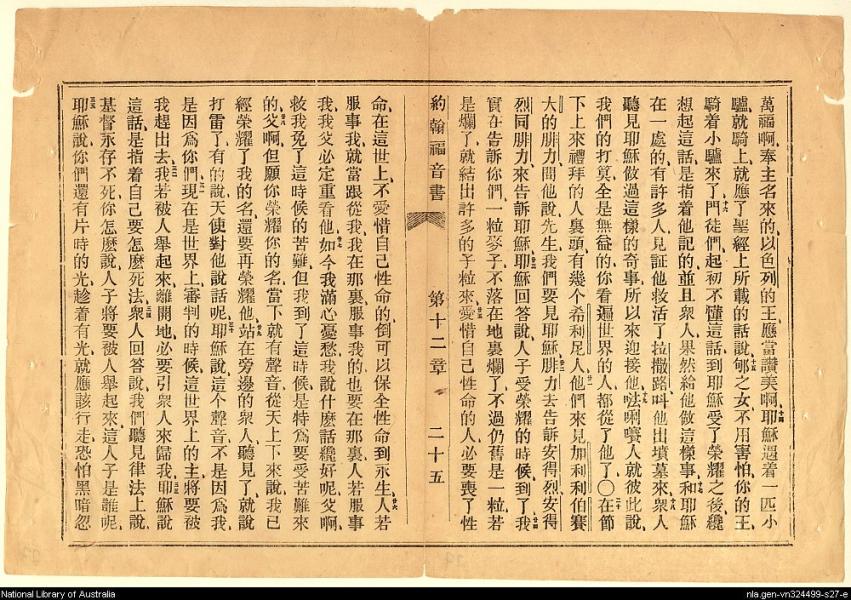 萬福啊、奉主名來的、以色列的王應當讚美啊、耶穌遇着一匹小
驢就騎上、就應了聖經上所載的話說、郇之女不用害怕、你的王
騎着小驢來了、門徒們起初不懂這話、到耶穌受了榮耀之後纔
想起這話是指着他記的、並且衆人果然給他做這樣事、和耶穌
在一處的、有許多人見証他救活了拉撒路、呌他出墳墓來、衆人
聽見耶穌做過這樣的奇事、所以來迎接他、𠵽唎賽人就彼此說、
我們的打算全是無益的、你看遍世界的人都從了他了〇在節
下上來禮拜的人裏頭、有幾個希利尼人、他們來見加利利伯賽
大的腓力、問他說、先生我們要見耶穌、腓力去告訴安得烈、安得
烈同腓力來告訴耶穌、耶穌回答說、人子受榮耀的時候到了、我
實在告訴你們、一粒麥子不落在地裏爛了、不過仍舊是一粒、若
是爛了、就結出許多的子粒來、愛惜自己性命的人、必要喪了性
約翰福音書 第十二章 二十五
命、在這世上、不愛惜自己性命的、倒可以保全性命到永生、人若
服事我、就當跟從我、我在那裏、服事我的也要在那裏、人若服事
我、我父必定重看他、如今我滿心憂愁、我說什麽話纔好呢、父啊、
救我免了這時候的苦難、但我到了這時候、是特爲要受苦難來
的、父啊、但願你榮耀你的名、當下就有聲音從天上下來說、我已
經榮耀了我的名、還要再榮耀他、站在旁邊的衆人聽見了、就說
打雷了、有的說天使對他說話呢、耶穌說、這個聲音不是因爲我、
是因爲你們、現在是世界上審判的時候、這世界上的主將要被
我趕出去、我若被人舉起來離開地、必要引衆人來歸我、耶穌說
這話、是指着自己要怎麽死法、衆人回答說、我們聽見律法上說、
基督永存不死、你怎麽說人子將要被人舉起來、這人子是誰呢、
耶穌說、你們還有片時的光、趁着有光就應該行走、恐怕黑暗忽
National Library of Australia
nla.gen-vn324499-s27-e